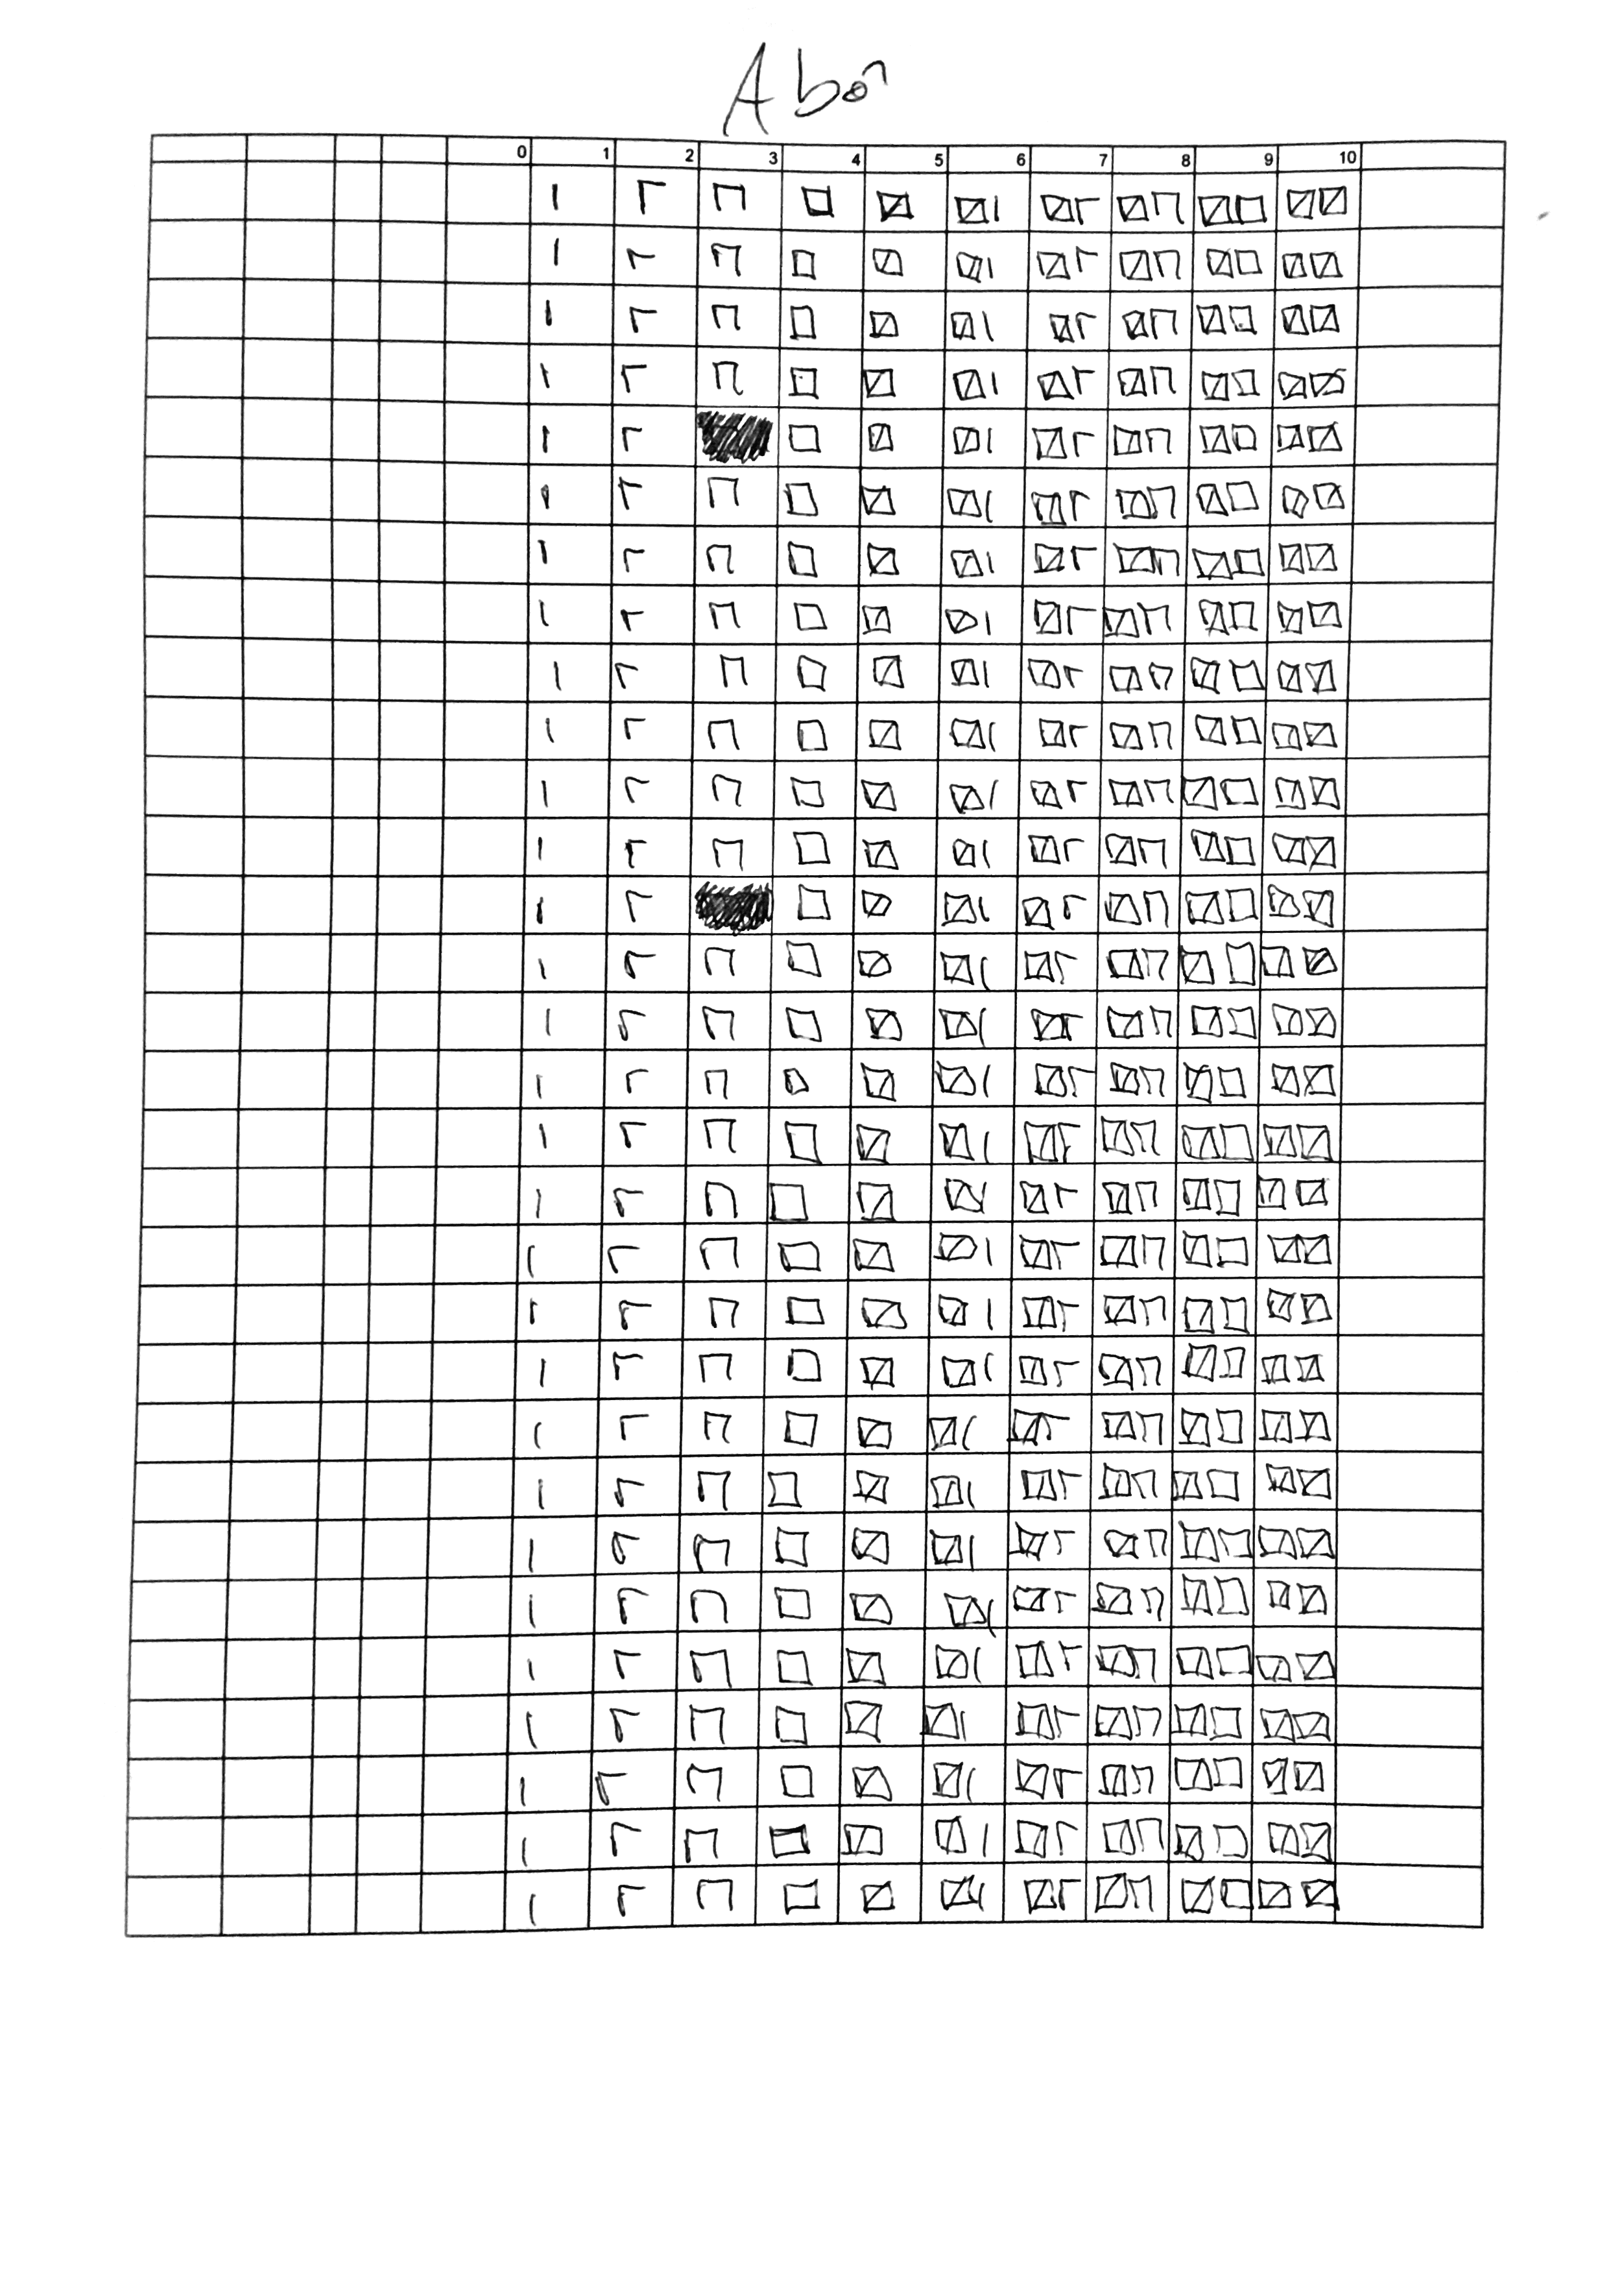 Abô
0 1 2 3 4 5 6 7 8 9 10